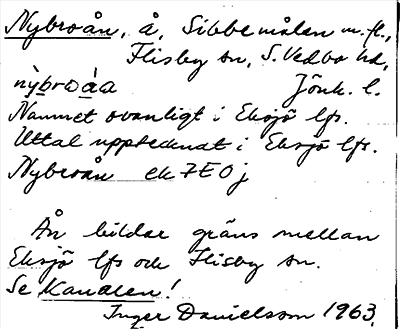 Nybroån, å, Sibbemålen m.fl.,
Flisby sn, S. Vedbo hd,
nỳbroàa Jönk. l.
Namnet ovanligt i Eksjö lfs.
Uttal upptecknat i Eksjö lfs.
Nybroån ek 7E0j
Ån bildar gräns mellan
Eksjö lfs och Flisby sn.
Se Kanalen!
Inger Danielsson 1963.